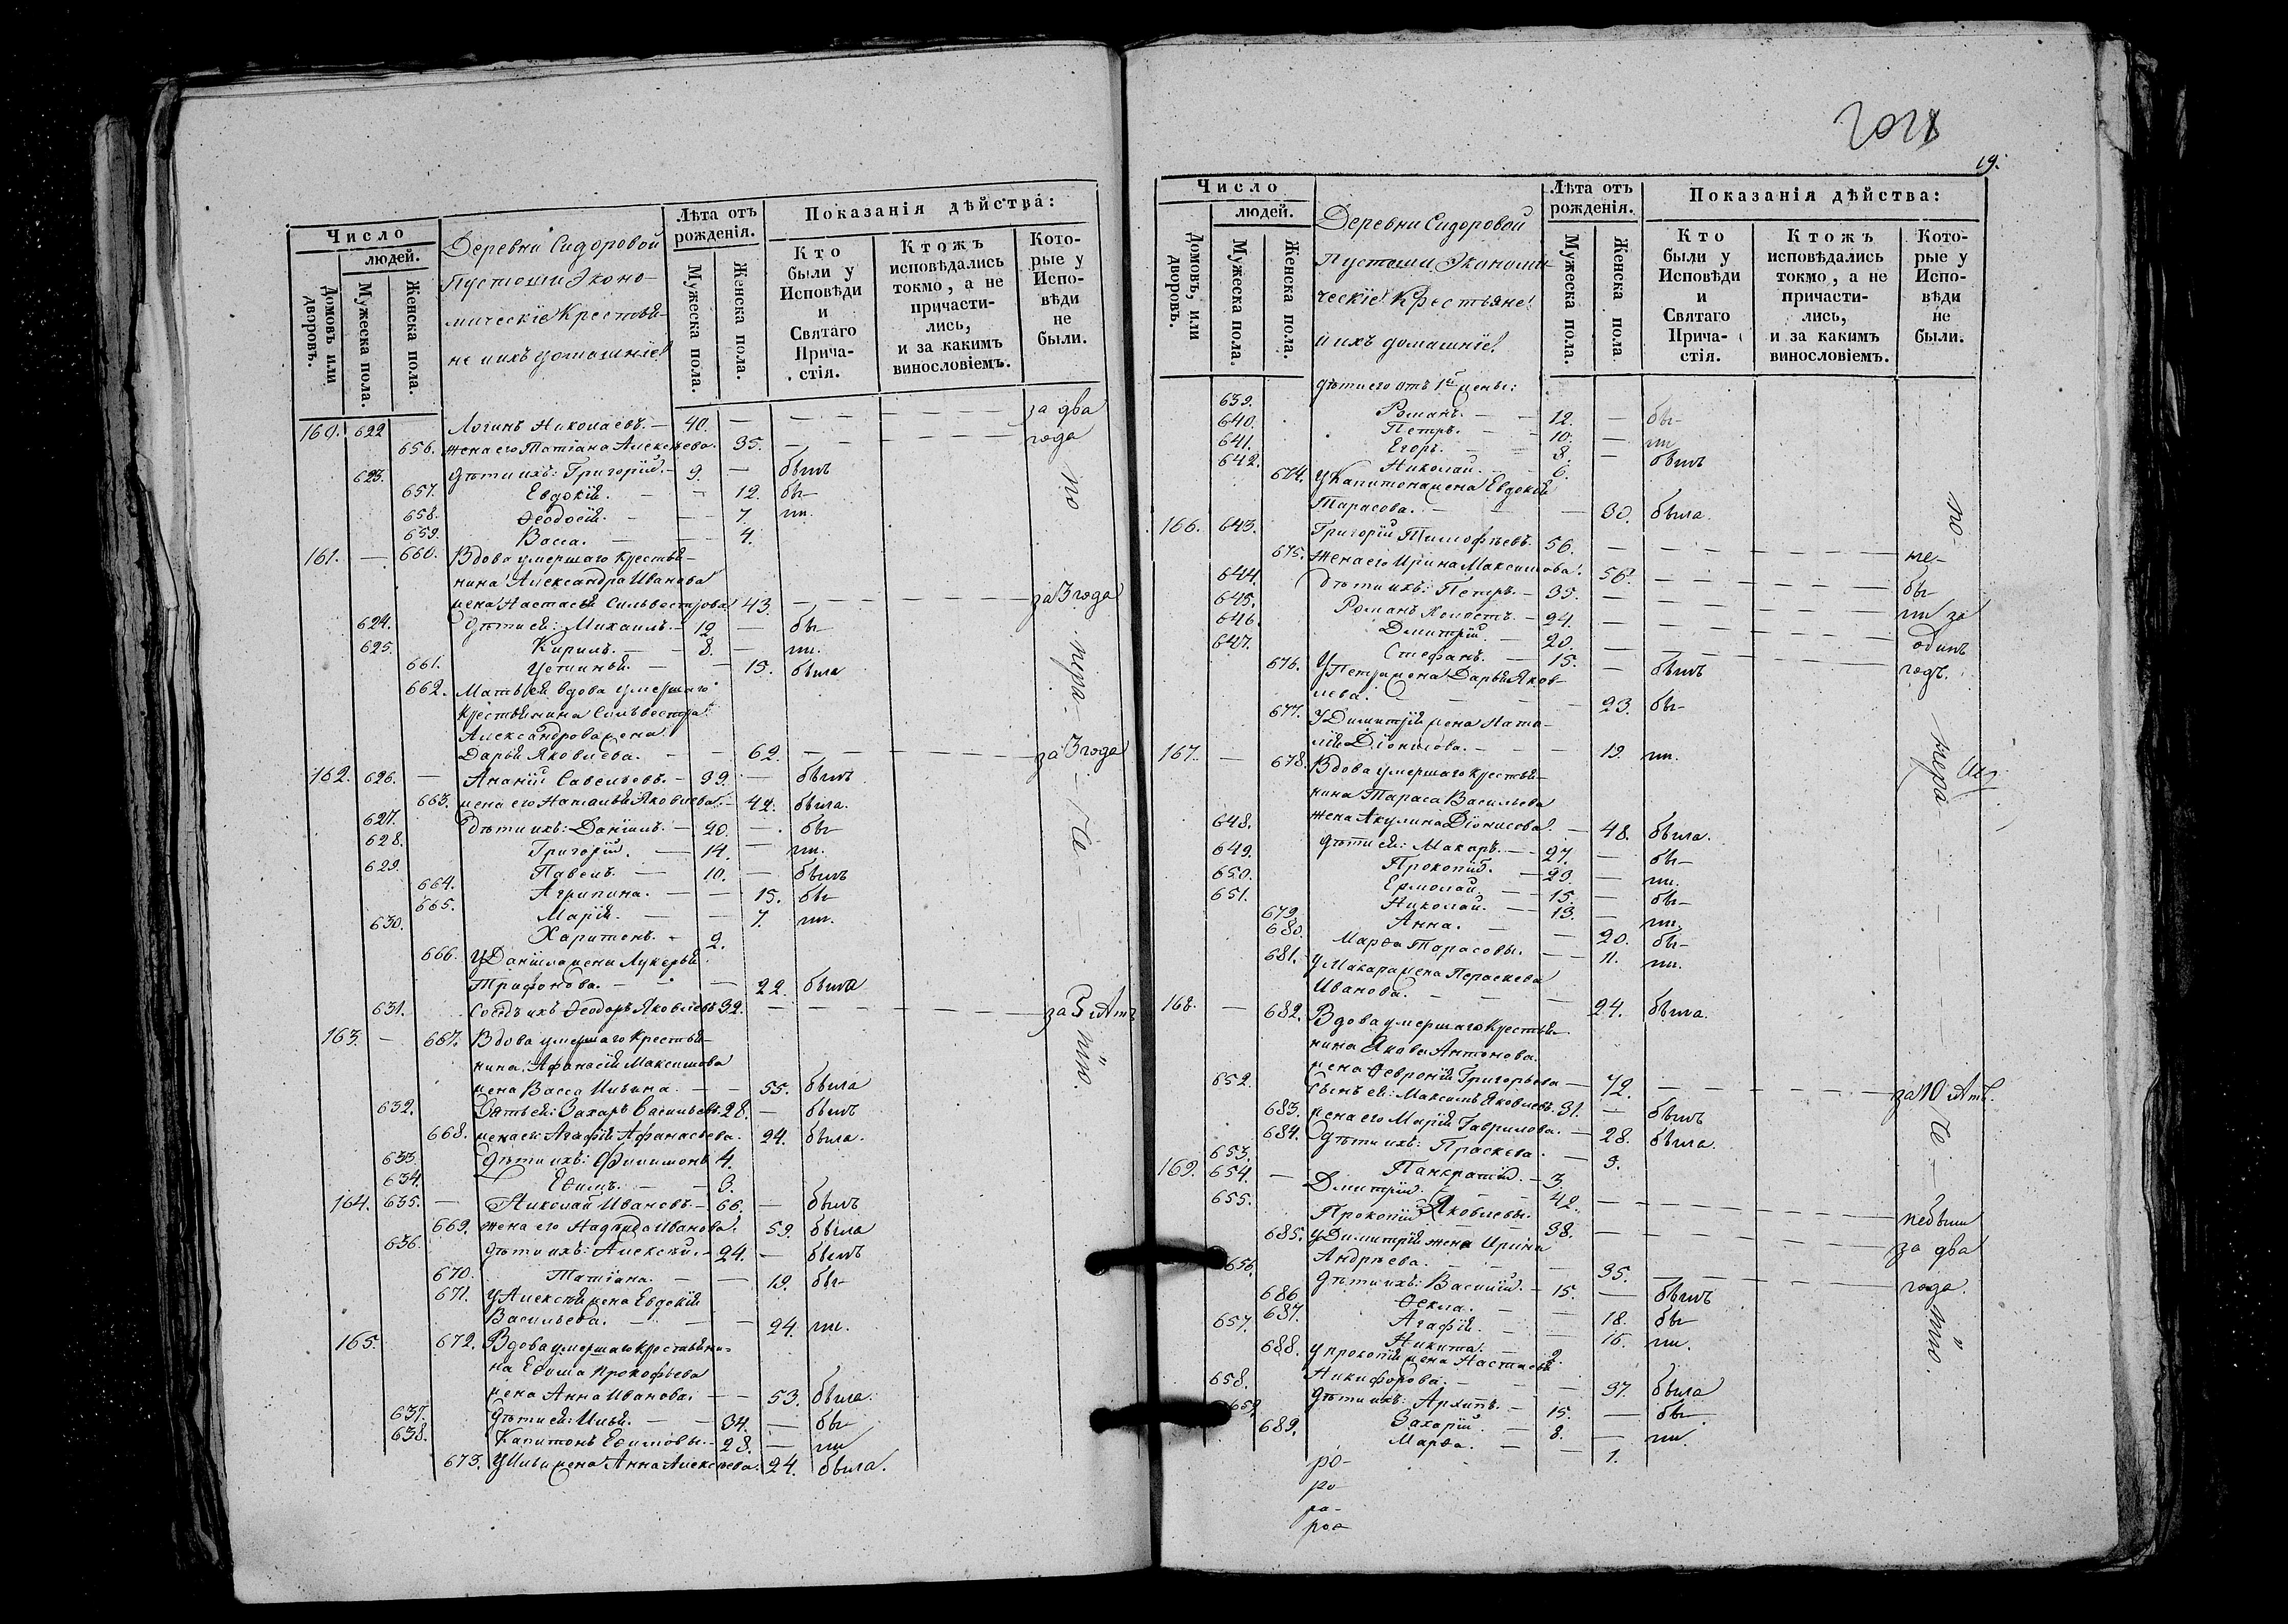 Число
людей.
Домовъ или дворовъ.
Мужеска пола.
Женска пола.
Деревни Сидоровой
Пустоши Эконо-
мическіе Крестья-
не и ихъ домашніе
Лѣта отъ рожденія.
Мужеска пола.
Женска пола.
Показанія дѣйства:
Кто были у Исповѣди и Святаго Прича-стія.
Ктожъ исповѣдались токмо, а не причасти-лись, и за какимъ винословіемъ.
Кото-рые у Испо-вѣди не были.
160. 622 Логинъ Николаевъ. — 40. — — — — — за два
656. жена его Татіана Алексѣева. 35. — — — — года
623. дѣти ихъ: Григорій. — 9. — былъ
657. Евдокія. — — 12. бы-
658. Ѳеодосія. — — 7. ли.
659. Васса. — — 4.
161. — 660. Вдова умершаго крестья-
нина Александра Иванова
жена Настасья Сильвестрова 43. — — — — за 3 года
624. дѣти ея: Михаилъ. — 12 — бы-
625. Кирилъ. — 8. — ли.
661. Устинья. — — 15. была
662. Мать ея вдова умершаго
крестьянина Сильвестра
Александрова жена
Дарья Яковлева. — — 62. — — — — за 3 года
162. 626. — Ананій Савельевъ. — 39. — былъ
663. жена его Наталья Яковлева. — 42. была.
627. дѣти ихъ: Даніилъ. — 20. — бы-
628. Григорій. — 14. — ли.
629. Павелъ. — 10. — былъ
664. Агрипина. — — 15. бы-
665. Марія. — — 7. ли.
630. Харитонъ. — 2.
666. У Даніила жена Лукерья
Трифонова. — — — 22. была
631. Сосѣдъ ихъ Ѳеодоръ Яковлевъ 32. — — — — за 5 лѣтъ
163. — 667. Вдова умершаго крестья-
нина Афанасія Максимова
жена Васса Ильина. — — 55. была
632. Зять ея: Захаръ Васильевъ. 28. — былъ
668. жена его Агафія Афанасьева. 24. была.
633 дѣти ихъ: Филимонъ 4.
634. Ефимъ. — — 3.
164. 635. — Николай Ивановъ. — 66. — былъ
669. жена его Надежда Иванова. 59. была
636. дѣти ихъ: Алексѣй. — 24. — былъ
670. Татіана. — — 19. бы-
671. У Алексѣя жена Евдокія
Васильева. — — — 24. ли.
165. 672. Вдова умершаго крестьяни-
на Ефима Прокофьева
жена Анна Иванова. — — 53. была.
637. дѣти ея: Илья. — — 34. — бы-
638. Капитонъ Ефимовы. — 28. — ли
673. У Ильи жена Анна Алексѣева. 24. была.
19.
Число
людей.
Домовъ, или дворовъ.
Мужеска пола.
Женска пола.
Деревни Сидоровой
Пустоши Экономи-
ческіе Крестьяне
и ихъ домашніе
Лѣта отъ рожденія.
Мужеска пола.
Женска пола
Показанія дѣйства:
Кто были у Исповѣди и Святаго Прича-стія.
Ктожъ исповѣдались токмо, а не причасти-лись, и за какимъ винословіемъ.
Кото-рые у Испо-вѣди не были.
дѣти его отъ 1й жены:
639. Романъ. — — 12. — бы-
640. Петръ. — — 10. — ли
641. Егоръ. — — 8. — былъ
642. Николай. — — 6.
674. У Капитона жена Евдокія
Тарасова. — — — 30. была.
166. 643. Григорій Тимофѣевъ. 56. — — — — не-
675. Жена его Ирина Максимова. 56. — — — — бы-
644. дѣти ихъ: Петръ. — 35. — — — — ли за
645. Романъ холостъ. — 24. — — — — одинъ
646. Дмитрій. — 20. — — — — годъ.
647. Стефанъ. — 15. — былъ
676. У Петра жена Дарья Яков-
лева. — — — 23. бы-
677. У Димитрія жена Ната-
лія Діонисова. — — — 19. ли.
167. — 678. Вдова умершаго крестья-
нина Тараса Васильева
жена Акулина Діонисова. — 48. была.
648. дѣти ея: Макаръ. — 27. — бы-
649. Прокопій. — 23. — ли.
650. Ермолай. — 15. — бы-
651. Николай. — 13. — ли.
679. Анна. — — 20. бы-
680. Марѳа Тарасовы. — — 11. ли.
681. у Макара жена Параскева
Иванова. — — — 24. была.
168. — 682. Вдова умершаго крестья-
нина Якова Антонова.
жена Ѳевронія Григорьева — 72. — — — — за 10 лѣтъ.
652. Сынъ ея: Максимъ Яковлевъ. 31. — былъ
683. жена его Марія Гаврилова. — 28. была.
684. дѣти ихъ: Праскева. — 9.
653. Панкратій. — 3.
169. 654. — Дмитрій. — 42. — — — — небыли
655. Прокопій Яковлевы. 38. — — — — за два
685. у Димитрія жена Ирина
Андрѣева. — — — 35. — — — — года.
656. дѣти ихъ: Василій. — 15. — былъ
686 Ѳекла. — — 18. бы-
687. Агафія. — — 16. ли.
657. Никита. — 2.
688. у Прокопія жена Настасья
Никифорова. — — — 37. была
658. дѣти ихъ: Архипъ. — 15. — бы-
659 Захарій. — 8. — ли.
689. Марѳа. — — 1.